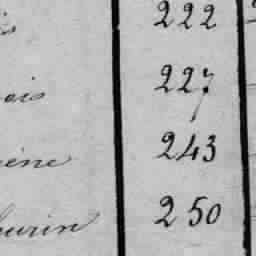 is 222
ais 227
ène 243
hurin 250